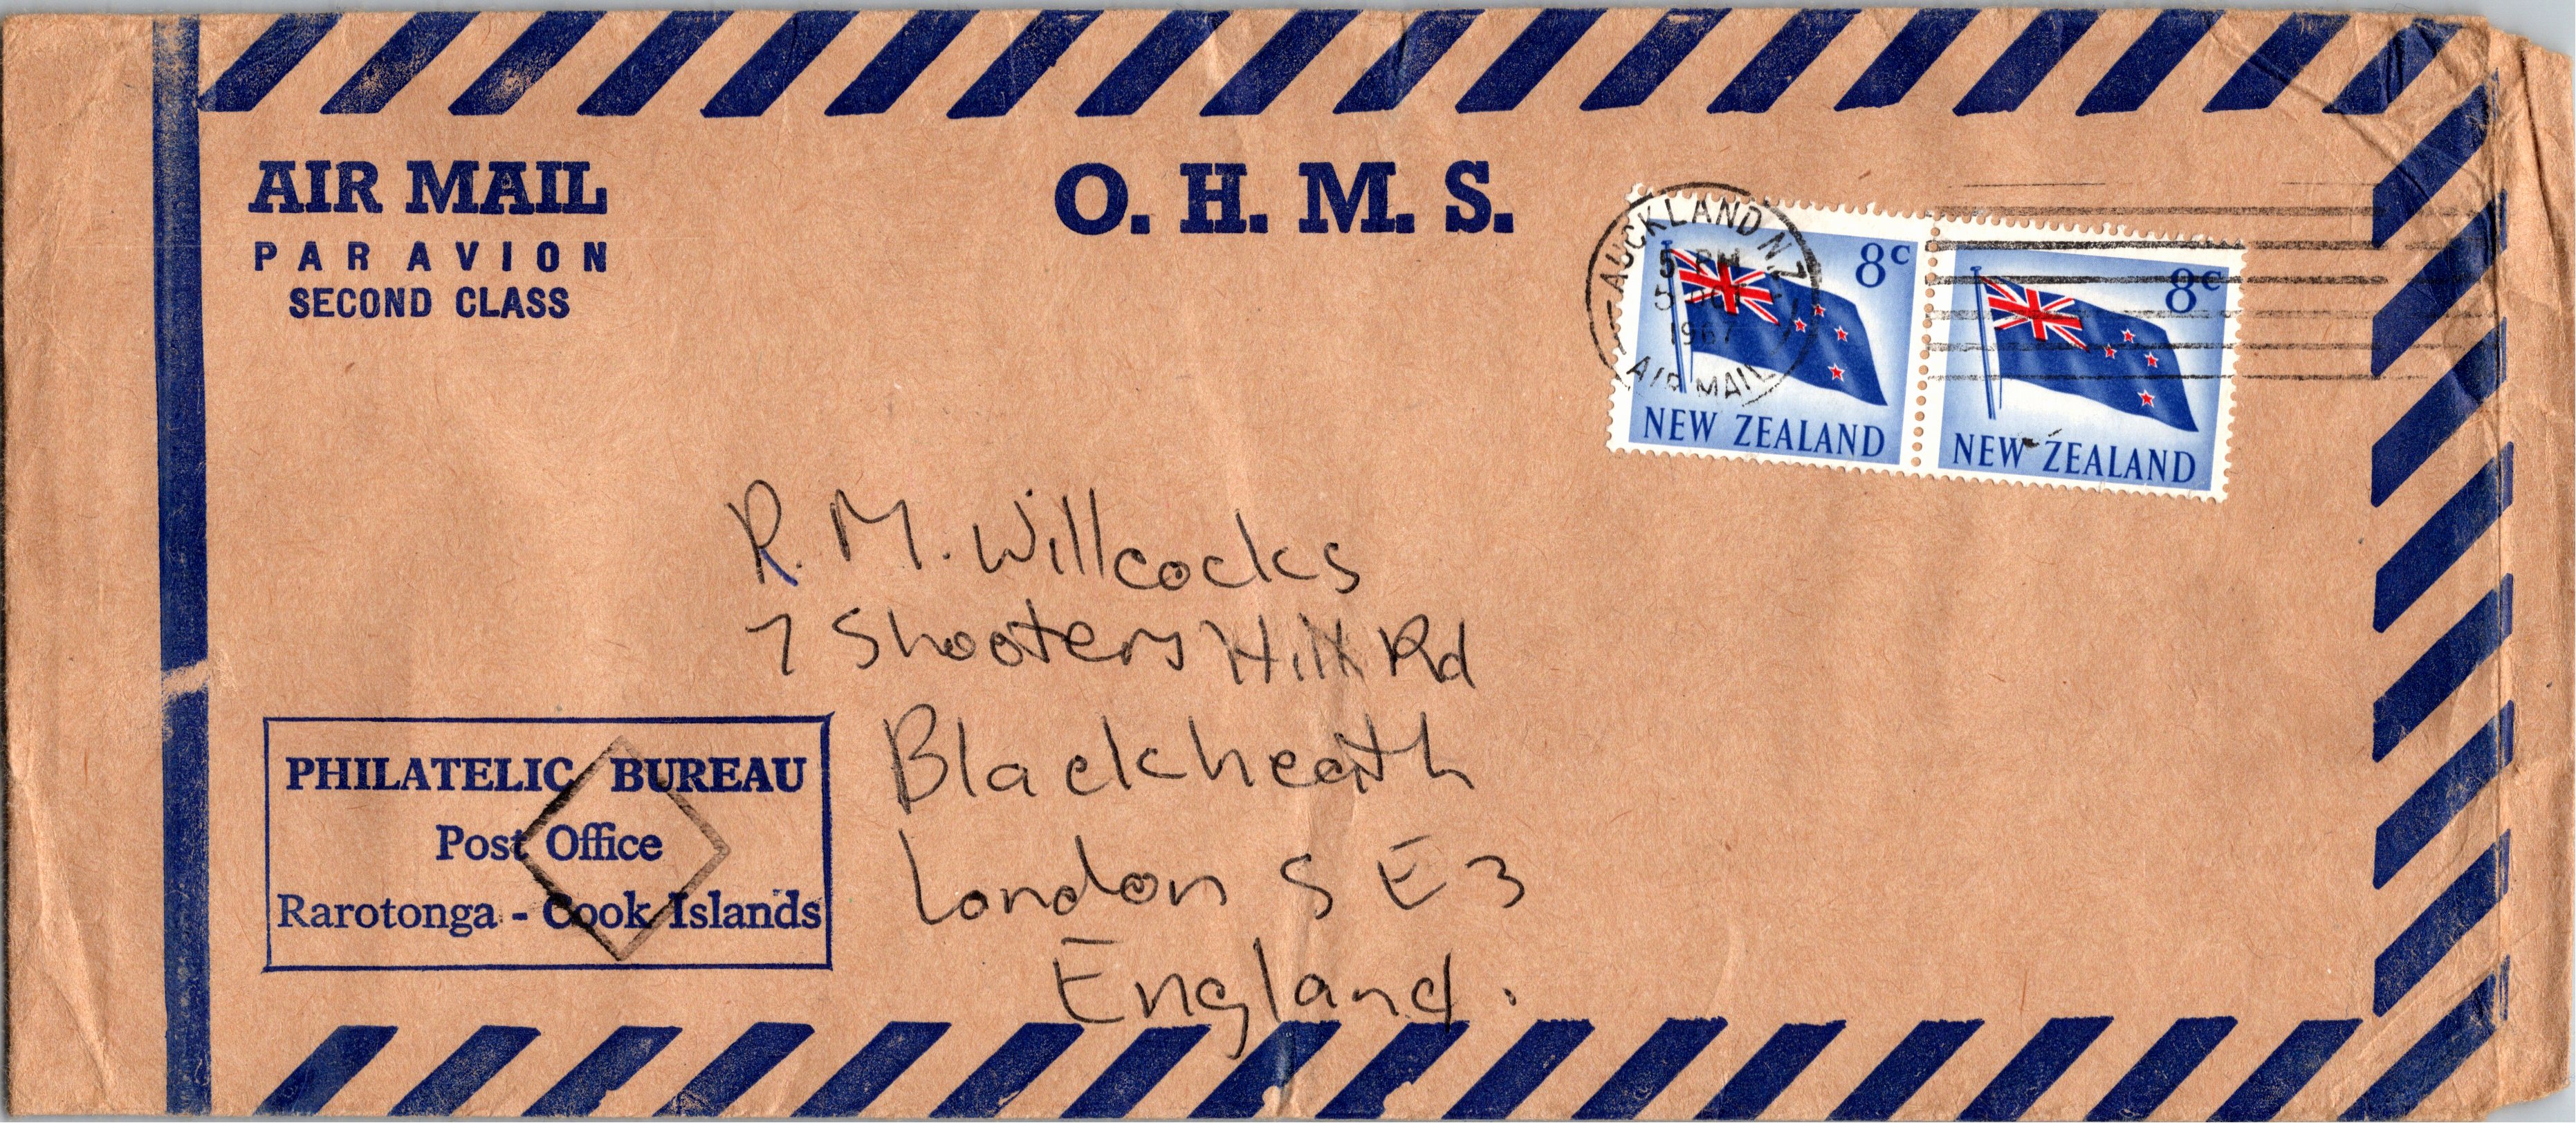 AIR MAIL
PAR AVION
SECOND CLASS
O. H. M. S.
AUCKLAND N.Z.
5 PM
5 OCT
1967
AIR MAIL
8c
NEW ZEALAND
8c
NEW ZEALAND
R. M. Willcocks
7 Shooters Hill Rd
Blackheath
London S E 3
England.
PHILATELIC BUREAU
Post Office
Rarotonga - Cook Islands